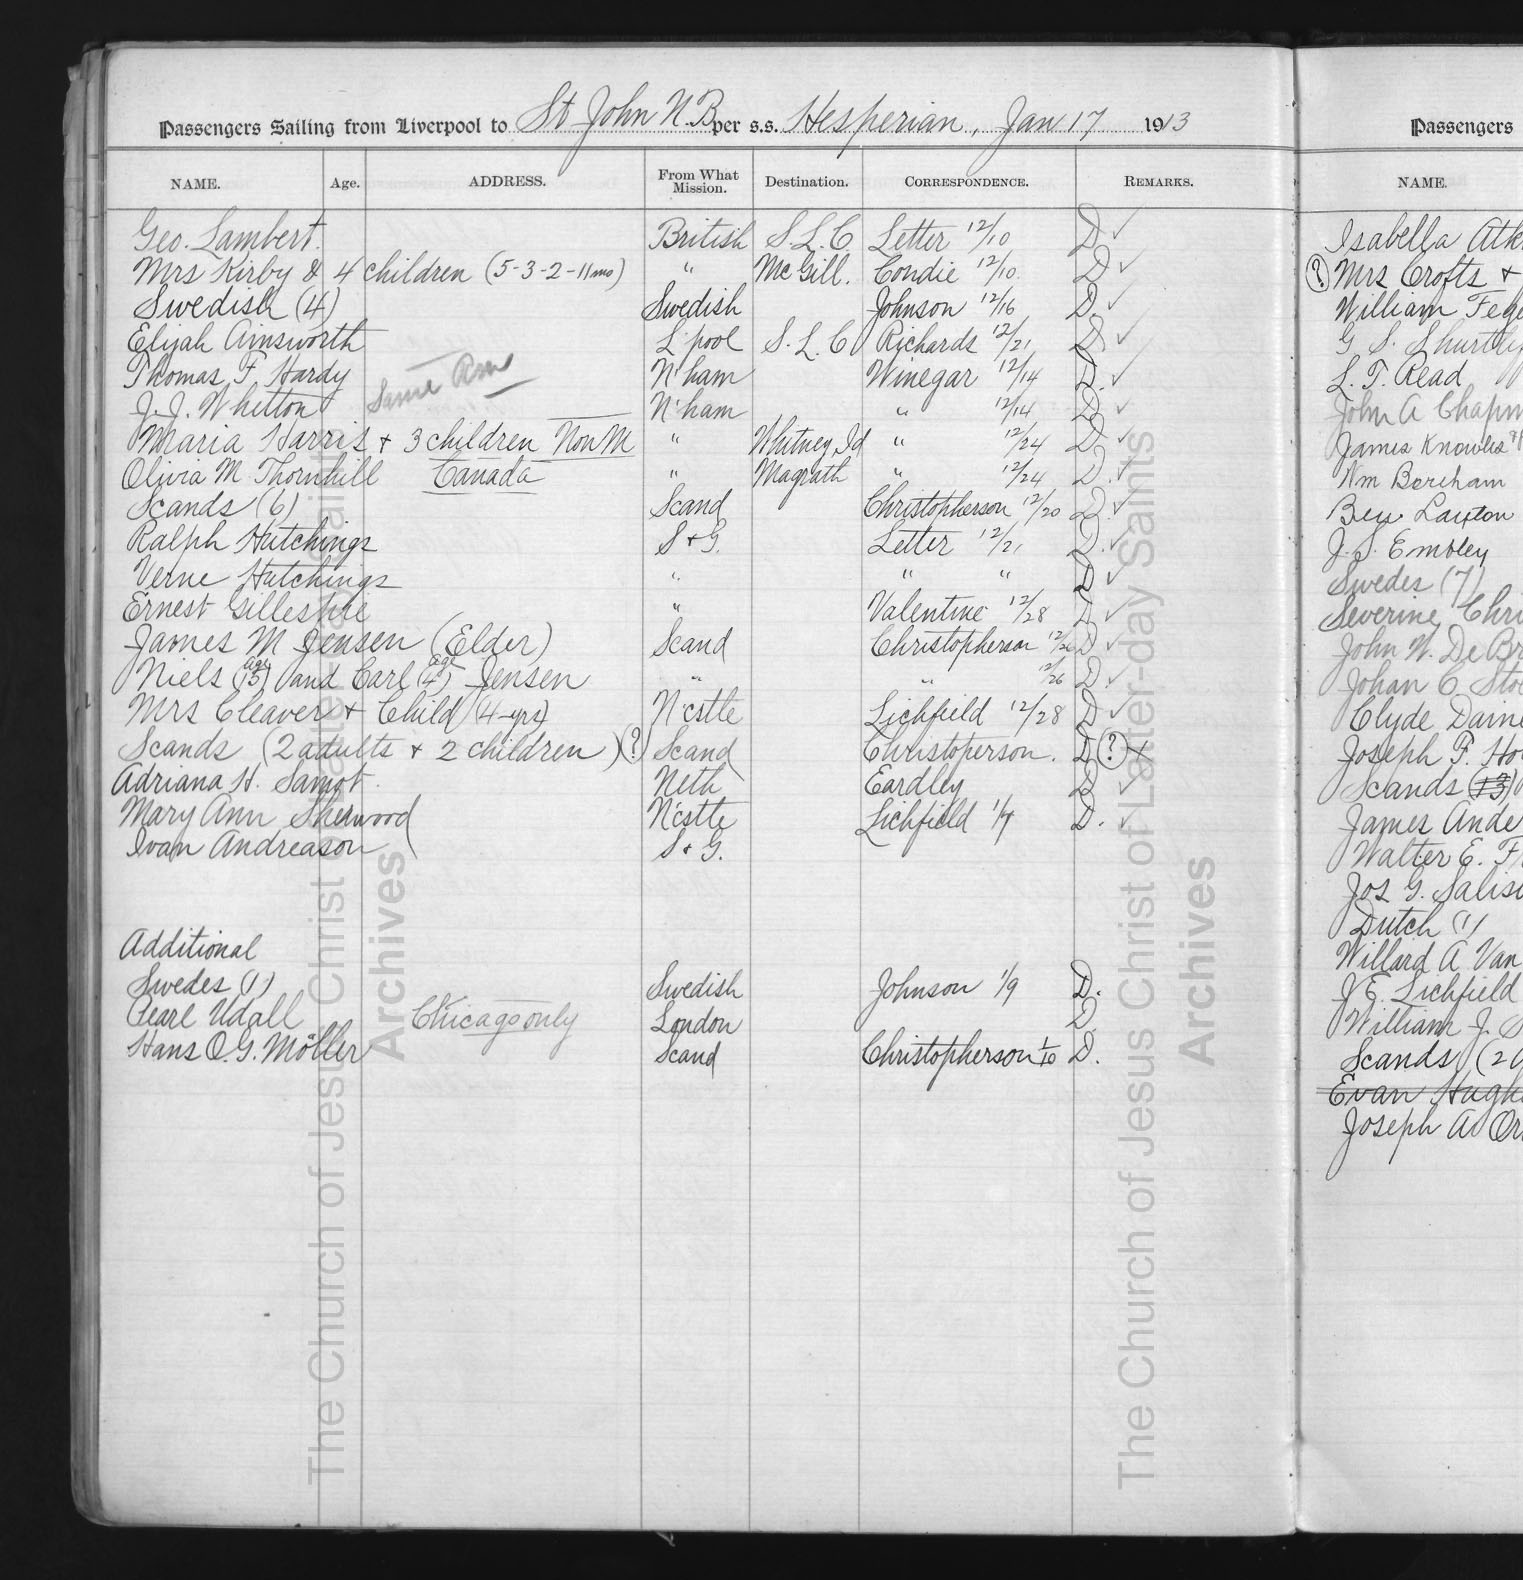 Passengers Sailing from Liverpool to St John N.B. per s.s. Hesperian, Jan 17 1913
NAME. Age. ADDRESS. From What Mission. Destination. CORRESPONDENCE. REMARKS.
Geo. Lambert. British S.L.C. Letter 12/10 D ✓
Mrs Kirby & 4 children (5-3-2-11mo) " McGill. Condie 12/10. D ✓
Swedish (4) Swedish Johnson 12/16 D. ✓
Elijah Ainsworth L'pool S.L.C Richards 12/21 D ✓
Thomas F Hardy Same Rm N'ham Winegar 12/14 D. ✓
J. J. Whetton N'ham " 12/14 D. ✓
Maria Harris + 3 children Non M " Whitney Id " 12/24 D. ✓
Olivia M Thornhill Canada " Magrath " 12/24 D. ✓
Scands (6) Scand Christopherson 12/20 D. ✓
Ralph Hutchings S + G. Letter 12/21 D. ✓
Verne Hutchings " " " D ✓
Ernest Gillespie " Valentine 12/28 D ✓
James M Jensen (Elder) Scand Christopherson 12/26 D ✓
Niels (age 13) and Carl (age 4) Jensen " " 12/26 D ✓
Mrs Cleaver + Child (4 yrs) N'cstle Lichfield 12/28 D ✓
Scands (2 adults + 2 children) (?) Scand Christoperson. D (?)
Adriana H. Samot. Neth Eardley D ✓
Mary Ann Sherwood N'cstle Lichfield 1/7 D. ✓
Ivan Andreason S + G.
Additional
Swedes (1) Swedish Johnson 1/9 D.
Pearl Udall Chicago only London D.
Hans O. G. Möller Scand Christopherson 1/10 D.
Passengers
NAME.
Isabella
(?) Mrs Crofts +
William
G S.
L. T. Read
John A
James Knowles
Wm Boreham
Ben Laxton
J. S. Embley
Swedes (7)
Severine
John W. De
Johan C
Clyde
Joseph F.
Scands (13)
James
Walter E.
Jos G.
Dutch (1)
Willard A Van
J. E. Lichfield
William J.
Scands (2
Evan
Joseph A.
The Church of Jesus Christ of Latter-day Saints
Archives
The Church of Jesus Christ of Latter-day Saints
Archives